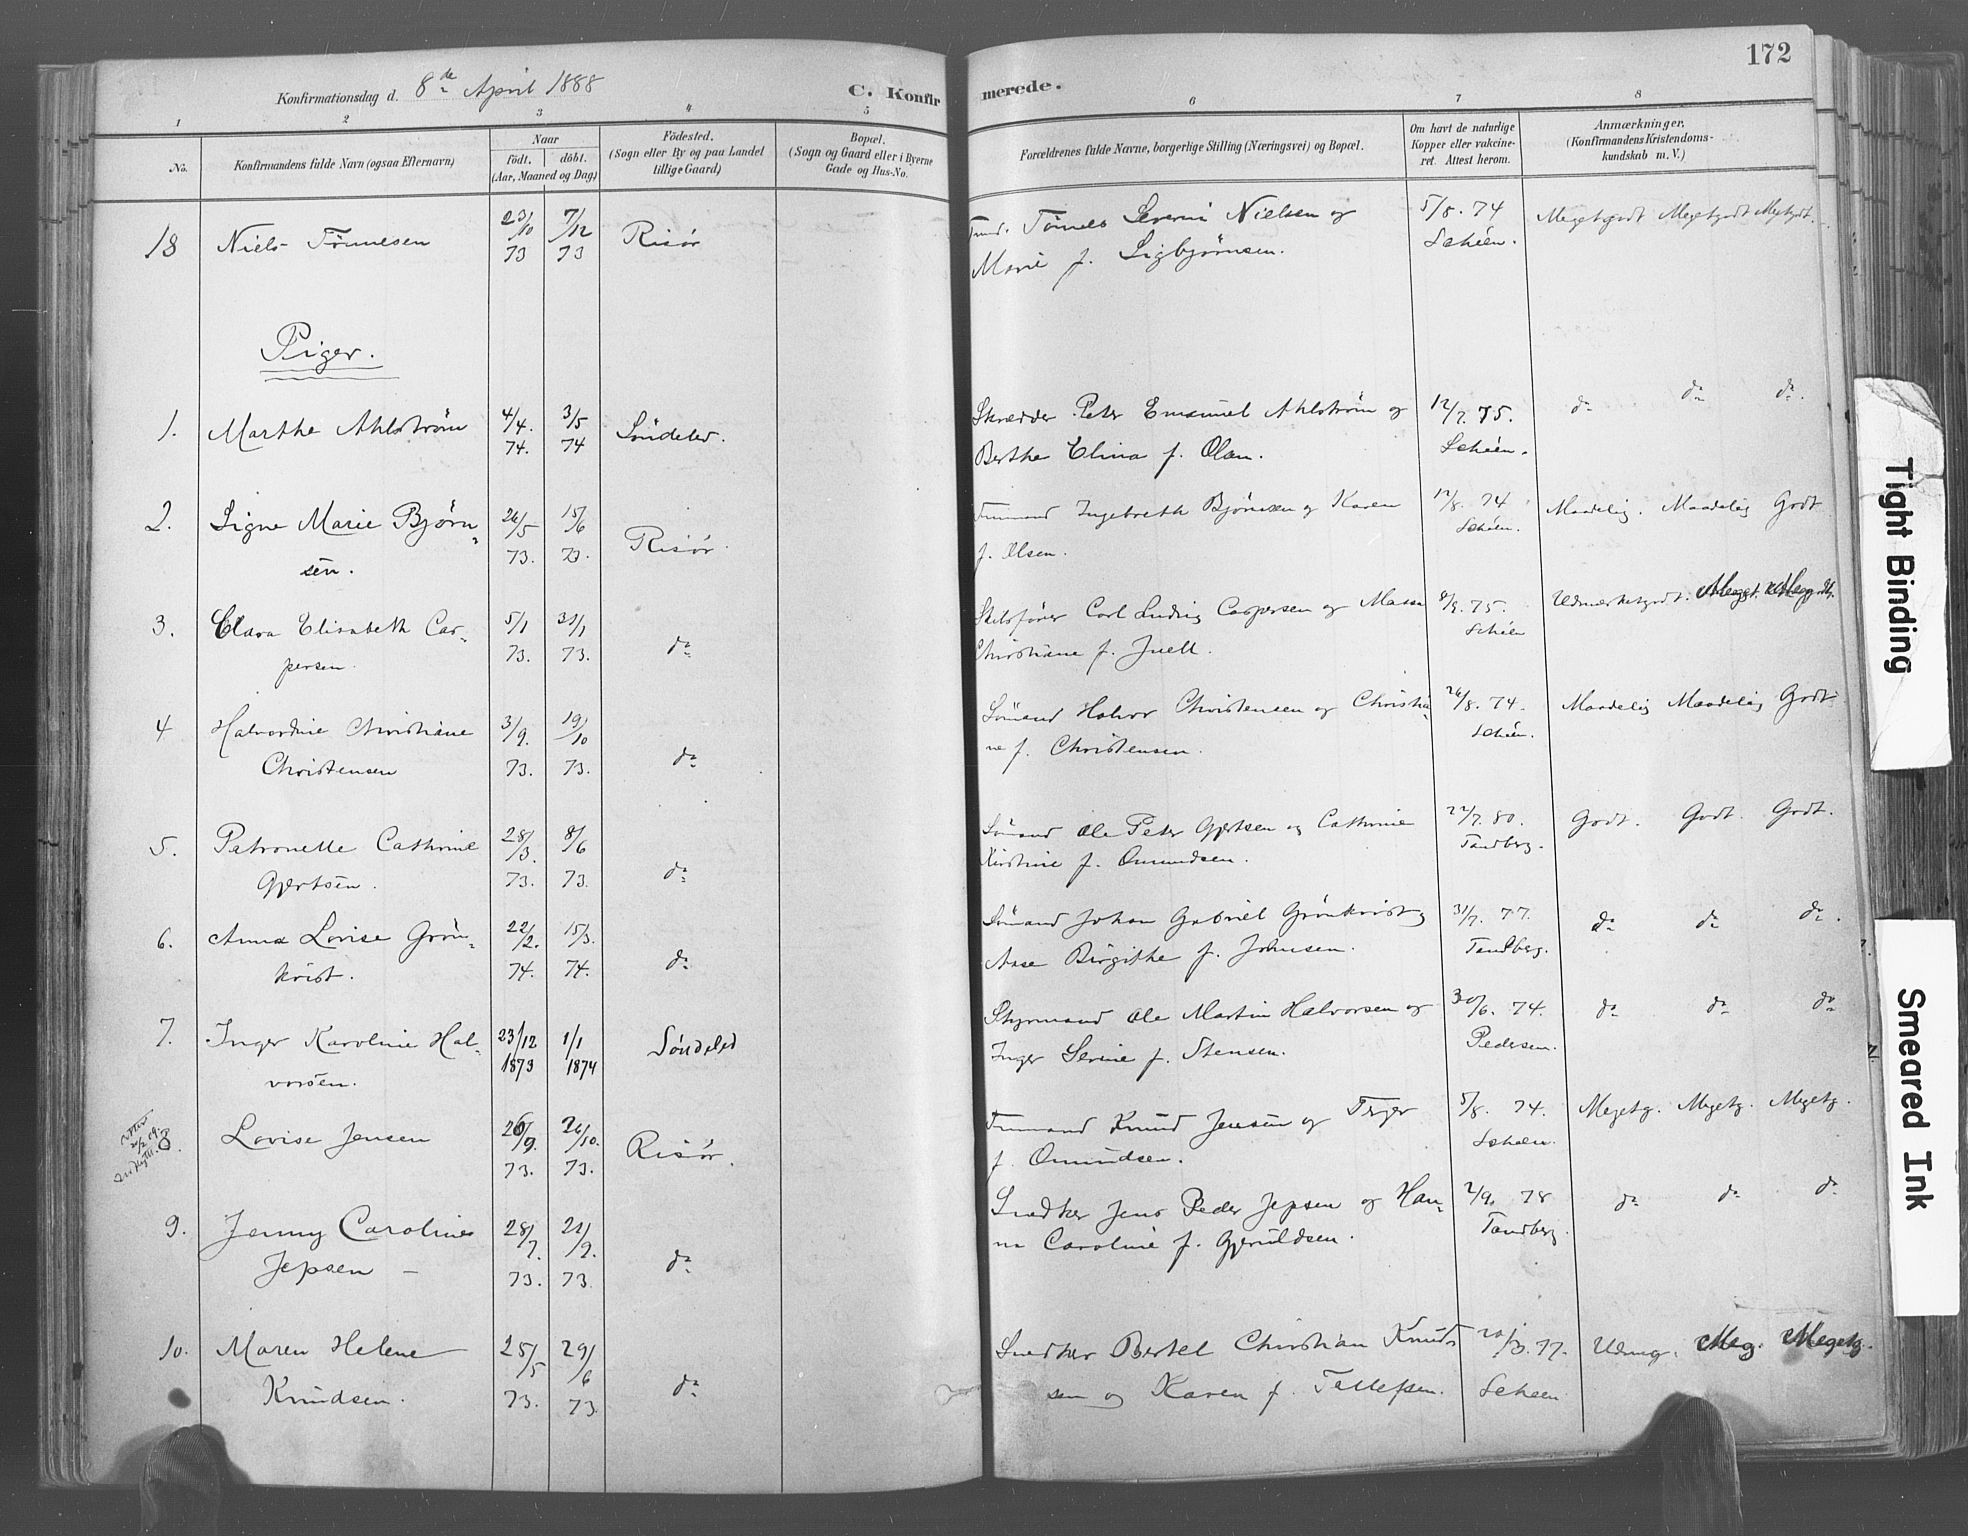 172
Konfirmationsdag d. 8de April 1888
C. Konfirmerede.
1 2 3 4 5 6 7 8
No.
Konfirmandens fulde Navn (ogsaa Efternavn)
Naar
födt. döbt.
(Aar, Maaned og Dag)
Födested.
(Sogn eller By og paa Landet
tillige Gaard)
Bopæl.
(Sogn og Gaard eller i Byerne
Gade og Hus-No.
Forældrenes fulde Navne, borgerlige Stilling (Næringsvei) og Bopæl.
Om havt de naturlige
Kopper eller vakcine-
ret. Attest herom.
Anmærkninger.
(Konfirmandens Kristendoms-
kundskab m. V.)
18 Niels Tønnesen 23/10 73 7/12 73 Risør
Tønnes Severin Nielsen og
Marie f. Sigbjørnsen.
5/8. 74
Schéen.
Megetgodt Megetgodt Megtgdt.
Piger.
1. Marthe Ahlstrøm 4/4. 74. 3/5 74 Söndeled.
Skrædder Peter Emanuel Ahlstrøm og
Berthe Elina f. Olsen.
12/7. 75.
Schéen.
do do do.
2. Signe Marie Bjørn-
sen. 26/5 73. 15/6 73. Risør.
Tømmand Ingebreth Bjørnsen og Karen
f. Olsen.
12/8. 74
Schéen.
Maadelig. Maadelig Godt
3. Clara Elisabeth Cas-
persen. 5/1 73. 31/1 73. do
Skibsfører Carl Ludvig Caspersen og Maren
Christiane f. Juell.
8/9. 75.
Schéen
Udmærketgodt. Meget
4 Halvordine Christiane
Christensen 3/9. 73. 19/10 73. do
Sömand Halvor Christensen og Christia-
ne f. Christensen.
26/8. 74.
Schéen.
Maadelig Maadelig Godt
5. Petronelle Cathrine
Gjertsen. 28/3. 73. 8/6 73. do
Sömand Ole Peter Gjertsen og Cathrine
Kirstine f. Omundsen.
22/7. 80.
Tandberg.
Godt. Godt. Godt.
6. Anna Lovise Grøn-
kvist. 22/2. 74. 15/3. 74. do
Sömand Johan Gabriel Grönkvist og
Aase Birgithe f. Johnsen.
31/7. 77.
Tandberg.
do do do.
7. Inger Karoline Hal-
vorsen. 23/12 1873 1/1 1874 Söndeled
Styrmand Ole Martin Halvorsen og
Inger Serine f. Stensen.
30/6. 74.
Pedersen.
do do do
8. Lovise Jensen 26/9. 73. 26/10. 73. Risør.
Tømmand Knud Jensen og Terjer
f. Omundsen.
5/8. 74.
Schéen.
Megetg. Megetg. Megetg.
9. Jenny Caroline
Jepsen – 28/7. 73. 21/9. 73. do
Snedker Jens Peder Jepsen og Han-
na Caroline f. Gjeruldsen.
2/9. 78
Tandberg.
do do do
10. Maren Helene
Knudsen. 25/5 73. 29/6 73. do
Snedker Bertel Christian Knud-
sen og Karen f. Tellefsen.
20/3. 77.
Scheen
Udmg. Meg. Megetg.
Tight Binding
Smeared Ink